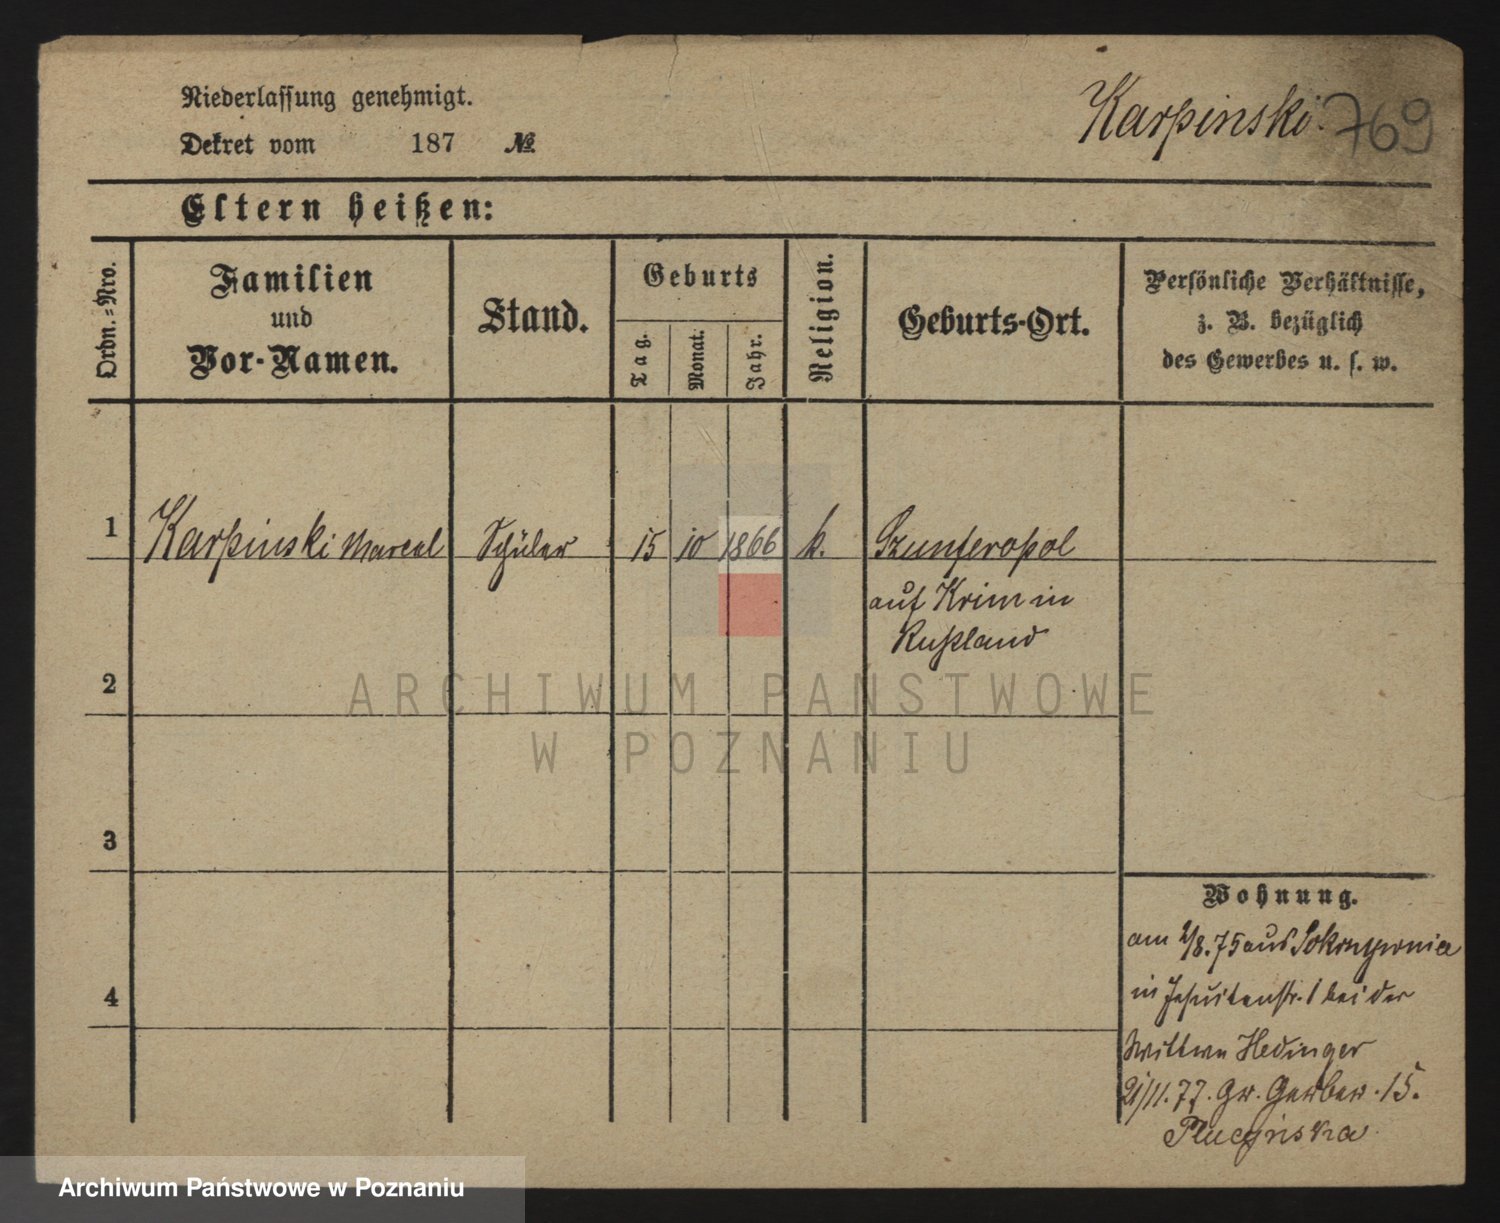 Niederlassung genehmigt.
Karpinski. 769
Dekret vom 187 №
Eltern heißen:
Ordn.=Nro.
Familien
und
Vor-Namen.
Stand.
Geburts
Tag.
Monat.
Jahr.
Religion.
Geburts-Ort.
Persönliche Verhältnisse,
z. B. bezüglich
des Gewerbes u. s. w.
1 Karpinski Marcel Schüler 15 10 1866 k. Szumferopol
auf Krim in
Rußland
2
ARCHIWUM PAŃSTWOWE
W POZNANIU
3
Wohnung.
am 2/8.75 aus
in Jesuitenstr. 1 bei der
4
Wittwe Hedinger
21/11.77. Gr. Gerber. 15.
Plucyńska
Archiwum Państwowe w Poznaniu